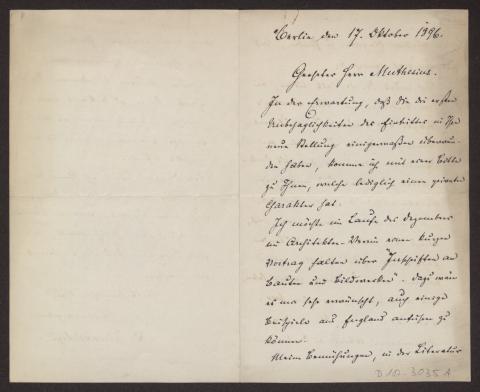 Berlin den 17. Oktober 1896.
Geehrter Herr Muthesius.
In der Erwartung, daß Sie die ersten
Unbehaglichkeiten des Eintrittes in Ihre
neue Stellung einigermaßen überwun-
den haben, komme ich mit einer Bitte
zu Ihnen, welche lediglich einen privaten
Charakter hat.
Ich möchte im Laufe des Dezembers
im Architekten-Verein einen kurzen
Vortrag halten über "Inschriften an
Bauten und Bildwerken". Dazu wäre
es mir sehr erwünscht, auch einige
Beispiele aus England anführen zu
können.
Meine Bemühungen, in der Literatur
D 102-3035 A